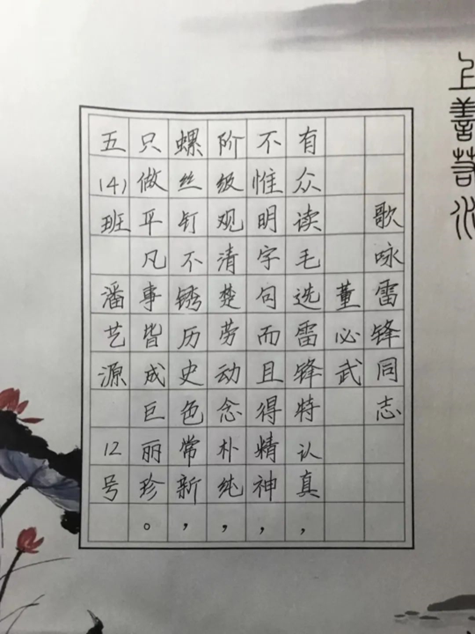 上善若水
歌咏雷锋同志
董必武
有众读毛选雷锋特认真，
不惟明字句而且得精神，
阶级观清楚劳动念朴纯，
螺丝钉不锈历史色常新，
只做平凡事皆成巨丽珍。
五(4)班 潘艺源 12号